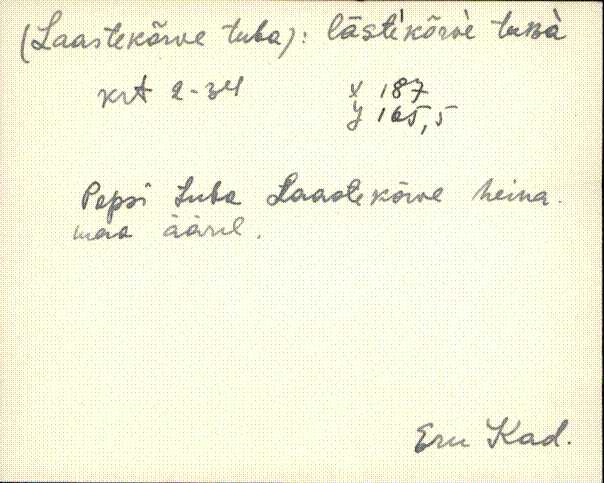 (Laastekõrve tuba): lāsti̓kõrvè tuʙà
krt 2-34 x 187
y 165,5
Popsi tuba Laastekõrve heina-
maa äärel.
Eru Kad.